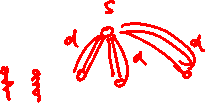 s
d
d
d